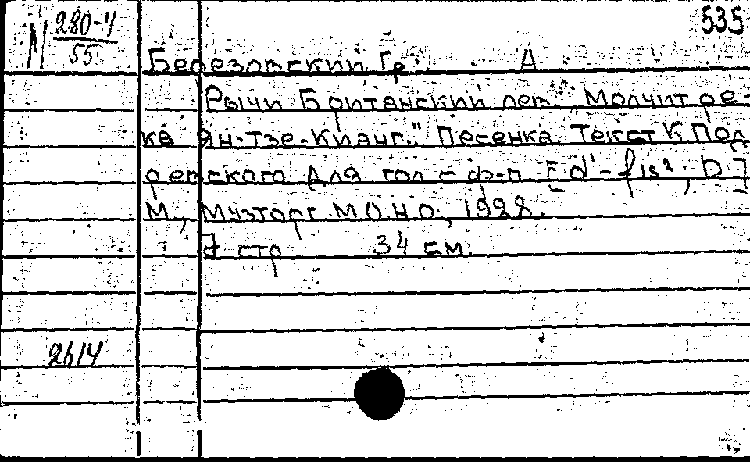 М 280-4 535
55
Березовский, Гр. А
"Рычи Британский лев. Молчит ре-
ка Ян-тзе-Кианг." Песенка. Текст К. Под
ретского. Для гол. с ф-п. [d¹-fis²; D.]
М., Музторг МОНО, 1928.
7 стр. 34 см.
2614